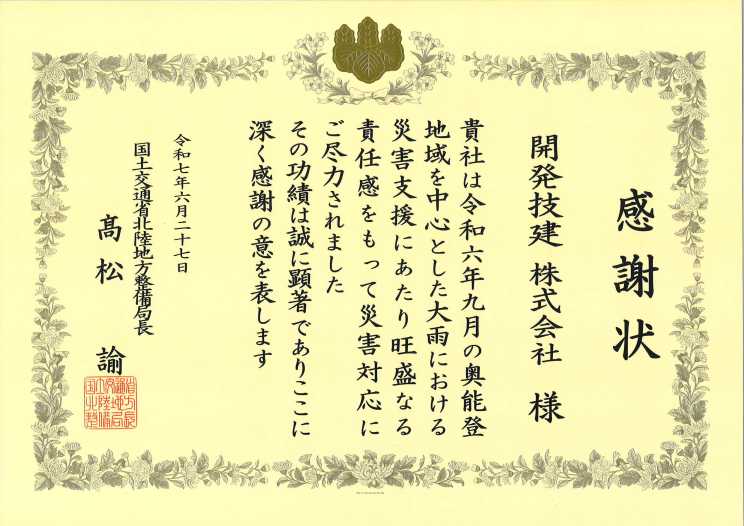 感謝状
開発技建 株式会社 様
貴社は令和六年九月の奥能登
地域を中心とした大雨における
災害支援にあたり旺盛なる
責任感をもって災害対応に
ご尽力されました
その功績は誠に顕著でありここに
深く感謝の意を表します
令和七年六月二十七日
国土交通省北陸地方整備局長
髙松 諭